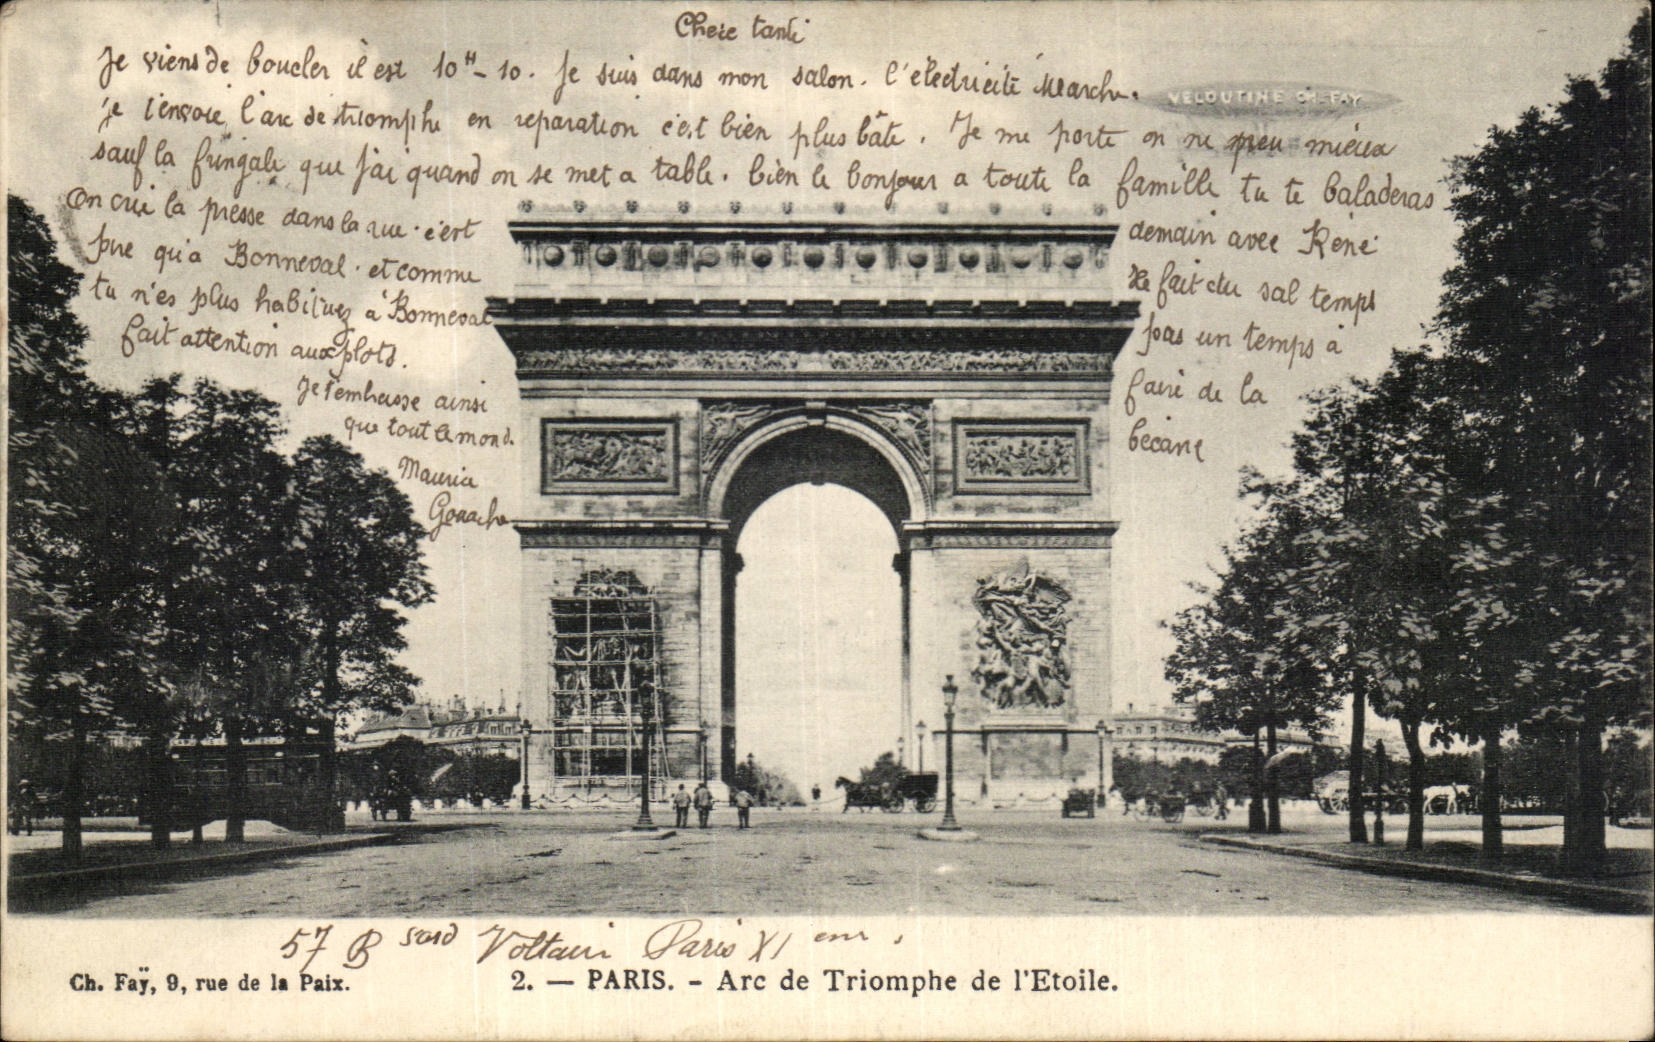 Chere tanti
Je viens de boucler il est 10H-10. Je suis dans mon salon. l'électricité Marche.
VELOUTINE CH. FAY
je t'envoie, l'arc de triomphe en reparation c'est bien plus bâte. Je me porte on ne peu mieux
sauf la fringale que j'ai quand on se met a table. bien le bonjour a toute la famille tu te baladeras
On crie la presse dans la rue. c'est
pire qu'a Bonneval. et comme
tu n'es plus habituez à Bonneval
fait attention aux plots.
Je t'embrasse ainsi
que tout le mond.
Maurice
demain avec René
Il fait du sal temps
pas un temps à
faire de la
becane
57 B Voltaire Paris XI eme.
Ch. Faÿ, 9, rue de la Paix.
2. — PARIS. - Arc de Triomphe de l'Etoile.